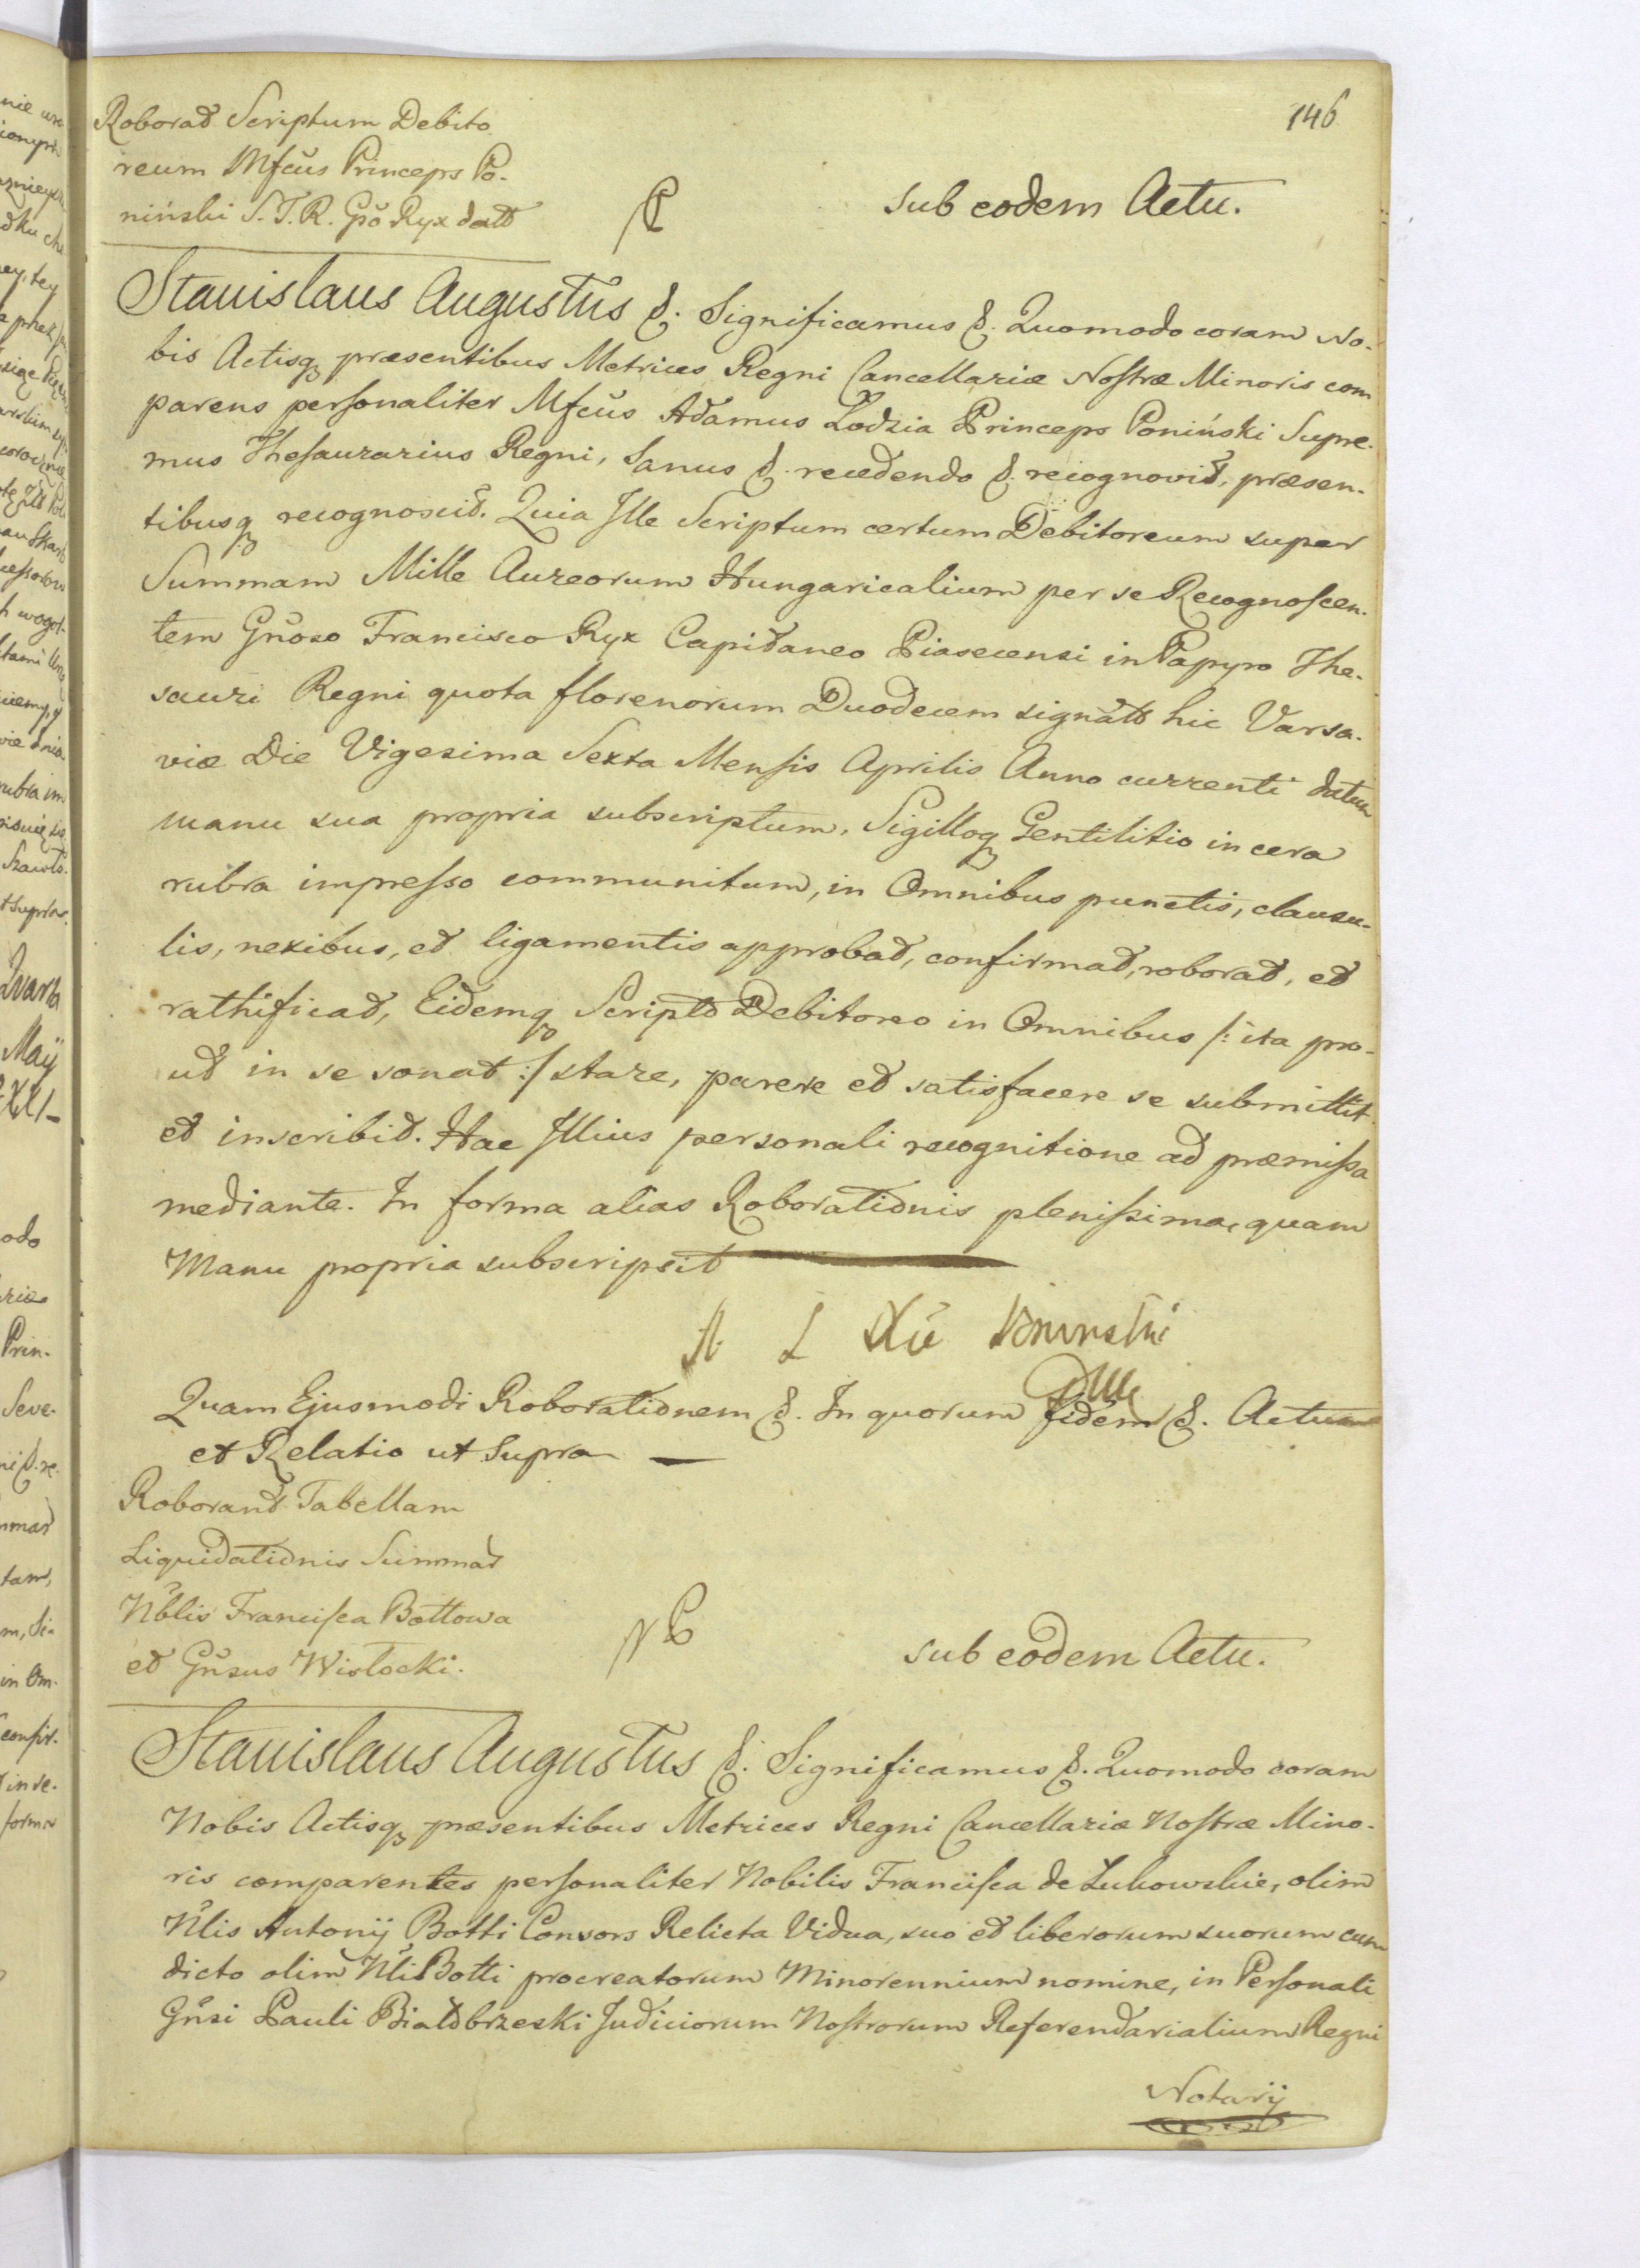 146
Roborat Scriptum Debito
reum Mfcus Princeps Po-
niński S. T. R. Gso Ryx datt
sub eodem Actu.
Stanislaus Augustus &. Significamus &. Quomodo coram No-
bis Actisq præsentibus Metrices Regni Cancellariæ Nostræ Minoris com
parens personaliter Mfcus Adamus Łodzia Princeps Poniński Supre-
mus Thesaurarius Regni, Sanus &. recedendo &. recognovit, præsen-
tibusq recognoscit. Quia Ille Scriptum certum Debitoreum super
Summam Mille Aureorum Hungaricalium per se Recognoscen-
tem Gnoso Francisco Ryx Capitaneo Piasecensi in Papyro The-
sauri Regni quota florenorum Duodecem signatt hic Varsa-
viæ Die Vigesima Sexta Mensis Aprilis Anno currenti datum
manu sua propria subscriptum, Sigilloq Gentilitio in cera
rubra impresso communitum, in Omnibus punctis, clausu-
lis, nexibus, et ligamentis approbat, confirmat, roborat, et
rathificat, Eidemq Scripto Debitoreo in Omnibus /: ita pro-
ut in se sonat :/ stare, parere et satisfacere se submittit
et inscribit. Hac Illius personali recognitione ad præmissa
mediante. In forma alias Roborationis plenissima, quam
Manu propria subscripsit
A L Xe Poninski
Quam Ejusmodi Roborationem &. In quorum fidem &. Actum
et Relatio ut Supra
Roborant Tabellam
Liquidationis Summar
Nblis Francisca Bottowa
et Gnsus Wisłocki.
sub eodem Actu.
Stanislaus Augustus &. Significamus &. Quomodo coram
Nobis Actisq præsentibus Metrices Regni Cancellariæ Nostræ Mino-
ris comparentes personaliter Nobilis Francisca de Łukowskie, olim
Nlis Antonij Botti Consors Relicta Vidua, suo et liberorum suorum cum
dicto olim Nli Botti procreatorum Minorennium nomine, in Personali
Gnsi Pauli Białobrzeski Judiciorum Nostrorum Referendarialium Regni
Notarij